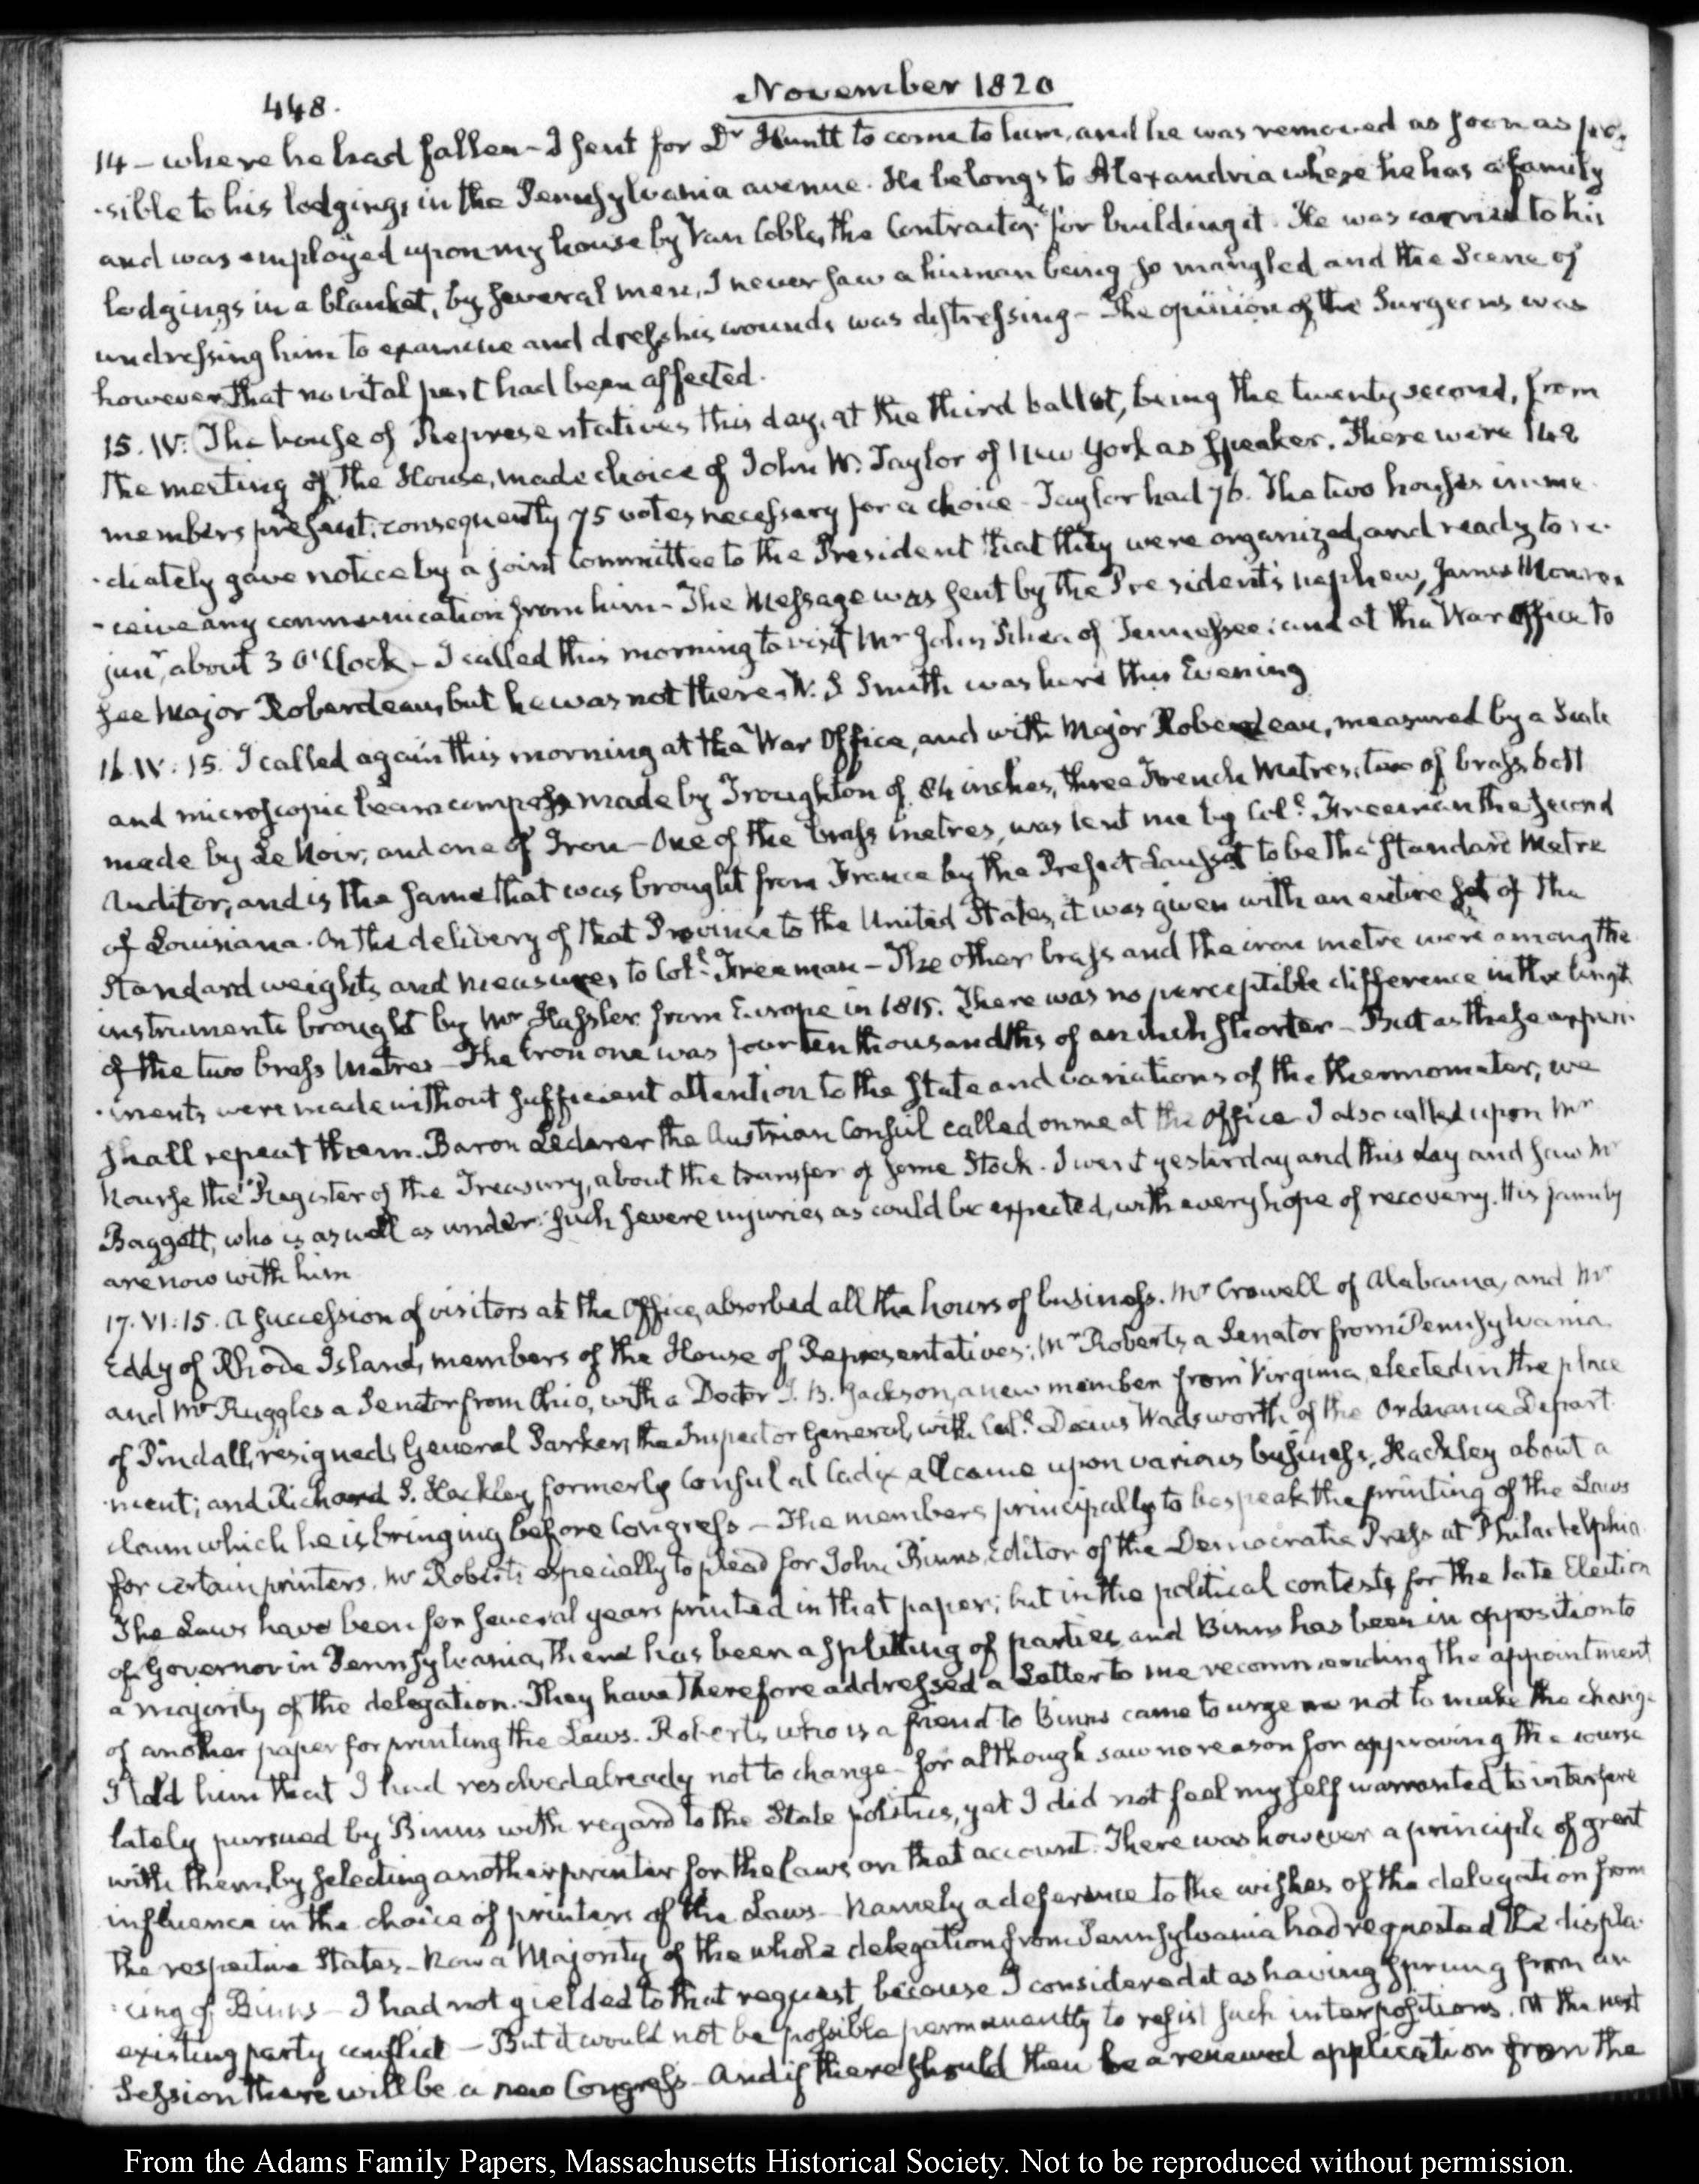 448.
November 1820
14 – where he had fallen – I sent for Dr Huntt to come to him, and he was removed as soon as pos-
-sible to his lodgings in the Pennsylvania avenue. He belongs to Alexandria where he has a family
and was employed upon my house by Van Coble, the Contractor for building it. He was carried to his
lodgings in a blanket, by several men, I never saw a human being so mangled and the Scene of
undressing him to examine and dress his wounds was distressing – The opinion of the Surgeons was
however that no vital part had been affected.
15. IV: The house of Representatives this day, at the third ballot, being the twenty second, from
the meeting of the House, made choice of John W. Taylor of New York as Speaker. There were 148
members present: consequently 75 votes necessary for a choice – Taylor had 76. The two houses imme-
-diately gave notice by a joint Committee to the President that they were organized, and ready to re-
-ceive any communication from him – The Message was sent by the President's nephew, James Monroe
junr, about 3 O'Clock – I called this morning to visit Mr John Rhea of Tennessee: and at the War Office to
see Major Roberdeau, but he was not there. W. S Smith was here this Evening
16. IV: 15. I called again this morning at the War Office, and with Major Roberdeau, measured by a Scale
and microscopic beam compass made by Troughton of 84 inches, three French Metres, two of brass, both
made by Le Noir, and one of Iron – One of the brass metres, was lent me by Coll. Freeman the second
Auditor, and is the same that was brought from France by the Prefect Laussat to be the Standard Metre
of Louisiana. On the delivery of that Province to the United States, it was given with an entire set of the
Standard weights and measures to Coll. Freeman – The other brass and the iron metre were among the
instruments brought by Mr Hassler from Europe in 1815. There was no perceptible difference in the length
of the two brass Metres – The iron one was four ten thousandths of an inch shorter – But as these experi-
-ments were made without sufficient attention to the state and variations of the thermometer, we
shall repeat them. Baron Lederer the Austrian Consul called on me at the Office I also called upon Mr
Nourse the Register of the Treasury, about the transfer of some Stock. I went yesterday and this day and saw Mr
Baggott, who is as well as under such severe injuries as could be expected, with every hope of recovery. His family
are now with him
17. VI: 15. A succession of visitors at the Office, absorbed all the hours of business. Mr Crowell of Alabama, and Mr
Eddy of Rhode Island, members of the House of Representatives; Mr Roberts, a Senator from Pennsylvania
and Mr Ruggles a Senator from Ohio, with a Doctor J. B. Jackson, a new member from Virginia, elected in the place
of Pindall, resigned, General Parker, the Inspector General, with Coll. Decius Wadsworth of the Ordnance Depart-
-ment; and Richard S. Hackley, formerly Consul at Cadiz all came upon various business, Hackley about a
claim which he is bringing before Congress – The members principally to bespeak the printing of the Laws
for certain printers. Mr Roberts especially to plead for John Binns, Editor of the Democratic Press at Philadelphia
The Laws have been for several years printed in that paper; but in the political contests for the late Election
of Governor in Pennsylvania, there has been a splitting of parties, and Binns has been in opposition to
a majority of the delegation. They have therefore addressed a Letter to me recommending the appointment
of another paper for printing the Laws. Roberts, who is a friend to Binns came to urge me not to make the change
I told him that I had resolved already not to change – for although saw no reason for approving the course
lately pursued by Binns with regard to the State politics, yet I did not feel myself warranted to interfere
with them, by selecting another printer for the laws on that account. There was however a principle of great
influence in the choice of printers of the Laws – Namely a deference to the wishes of the delegation from
the respective States – Now a Majority of the whole delegation from Pennsylvania had requested the displa-
-cing of Binns – I had not yielded to that request, because I considered it as having sprung from an
existing party conflict – But it would not be possible permanently to resist such interpositions. At the next
Session there will be a new Congress – And if there should then be a renewed application from the
From the Adams Family Papers, Massachusetts Historical Society. Not to be reproduced without permission.